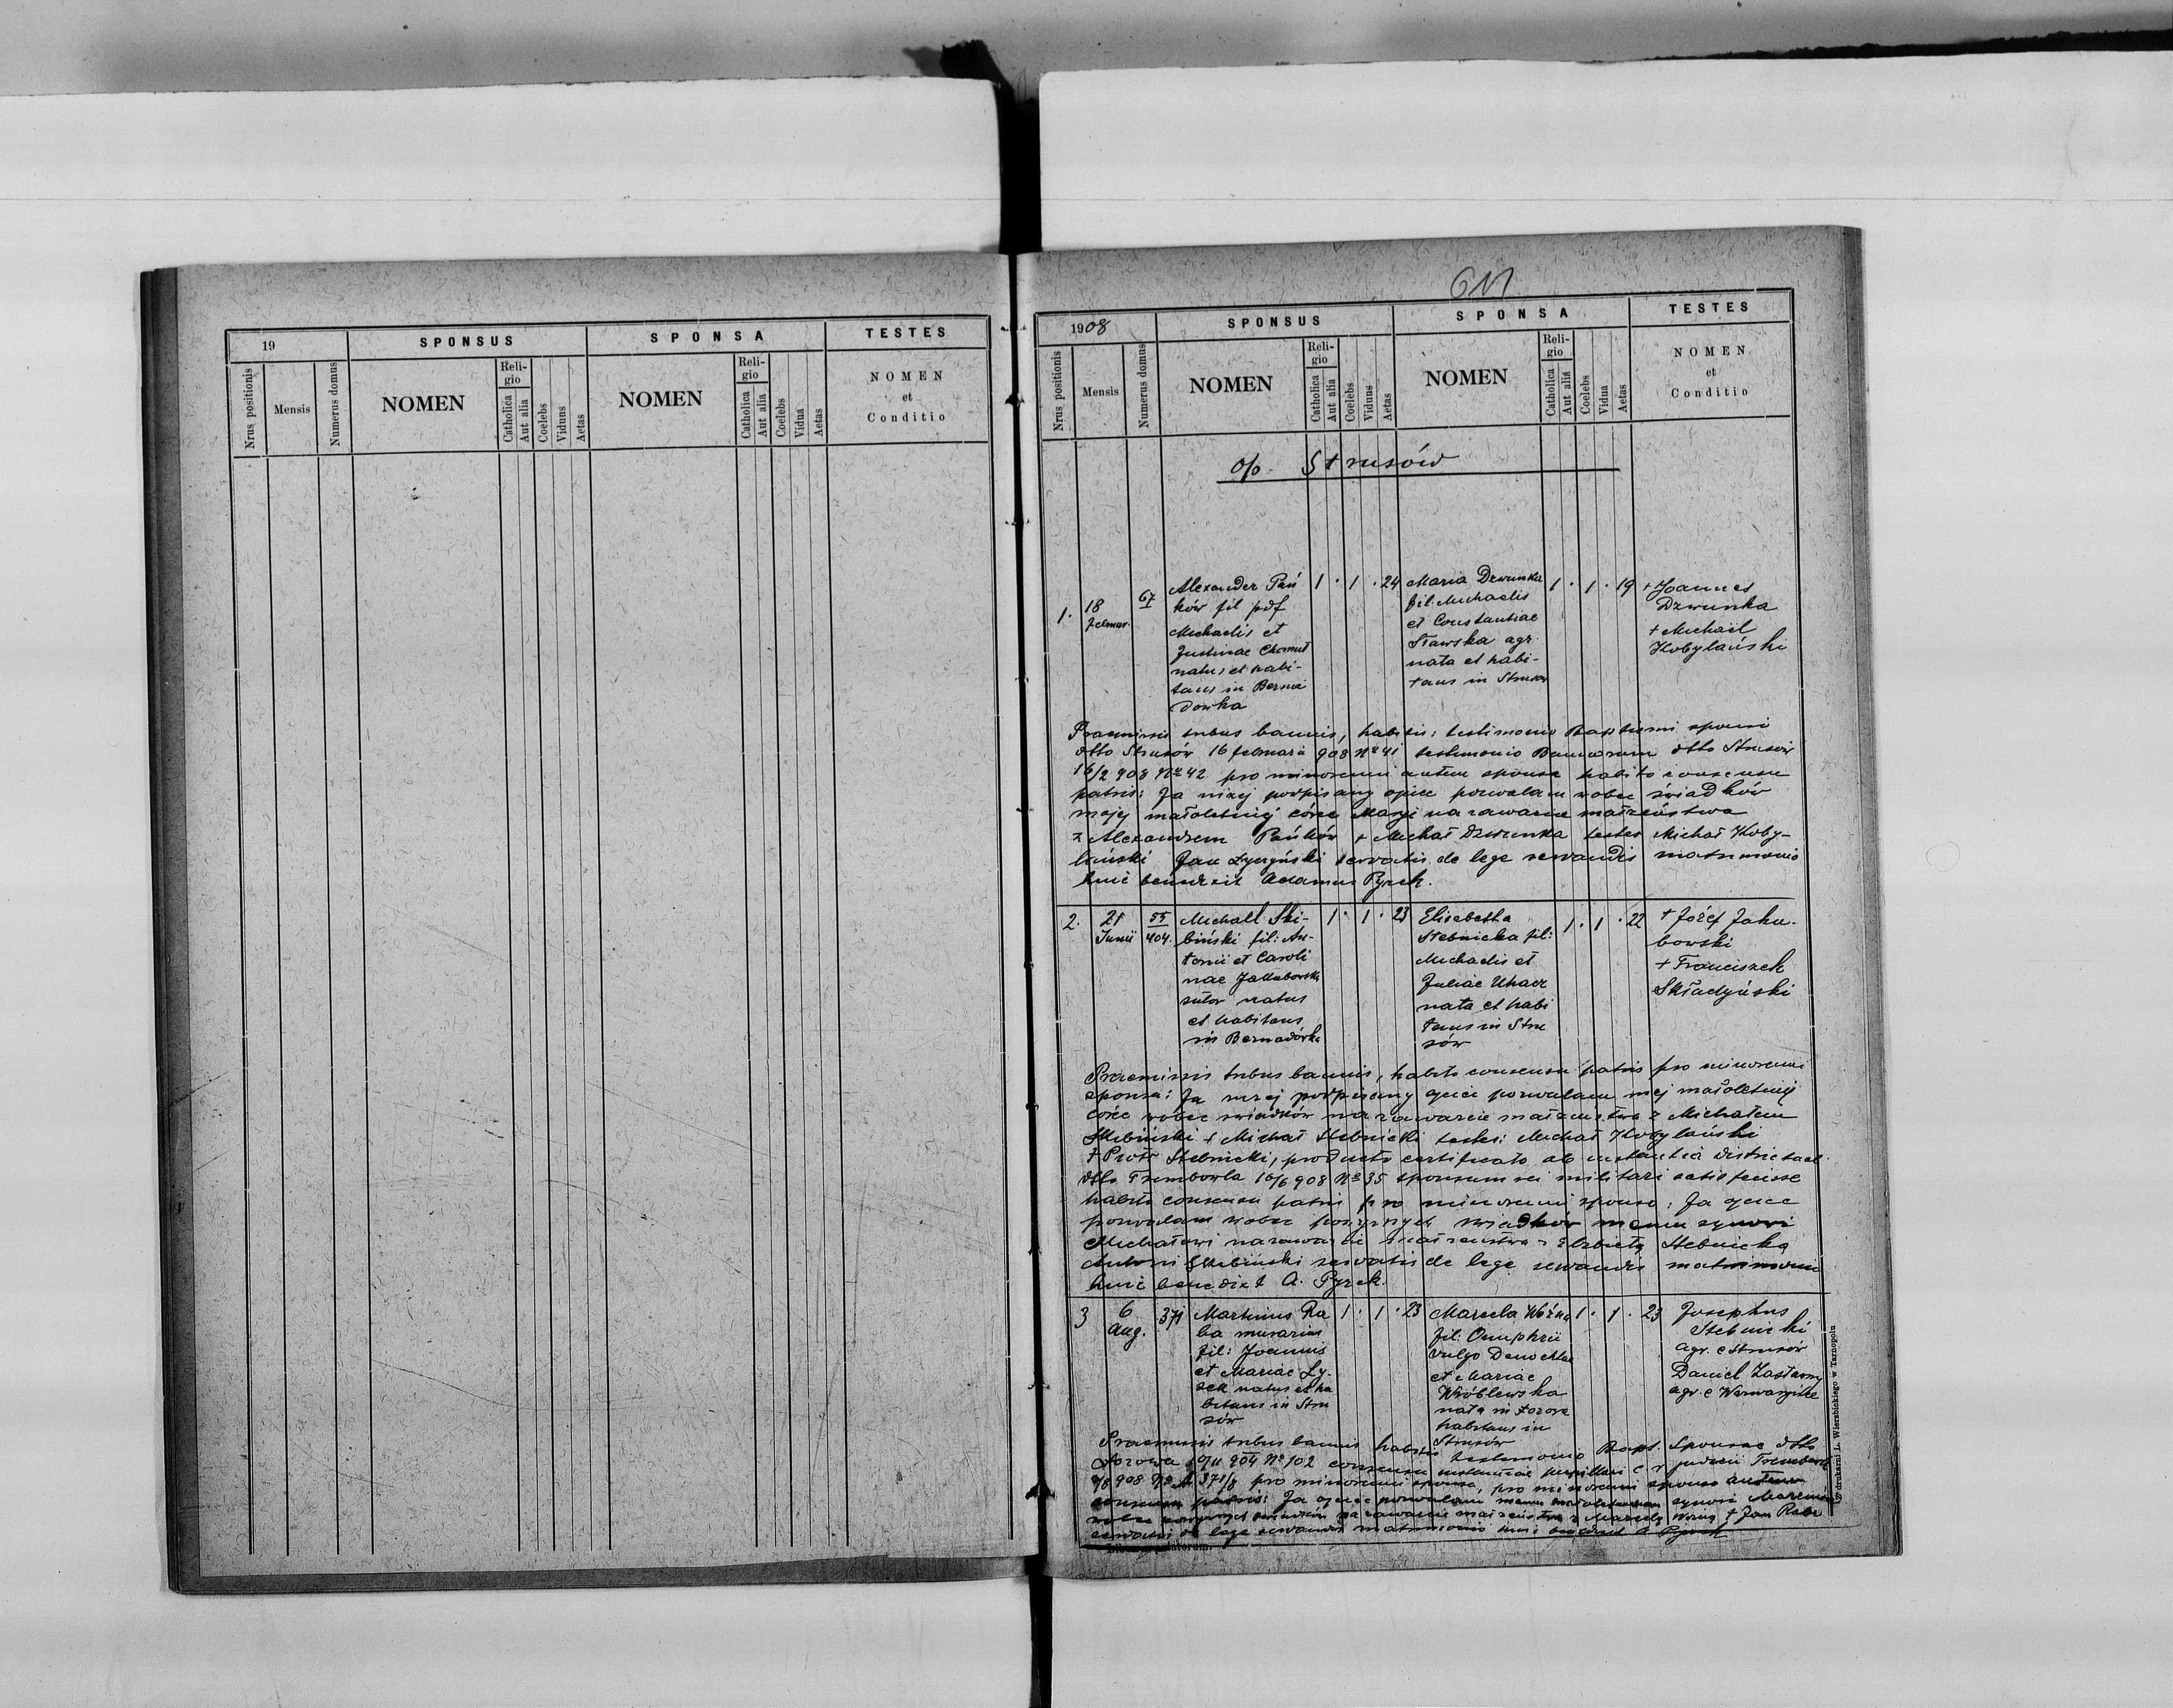 19
SPONSUS
SPONSA
TESTES
Nrus positionis
Mensis
Numerus domus
NOMEN
Religio
Catholica
Aut alia
Coelebs
Viduus
Aetas
NOMEN
Religio
Catholica
Aut alia
Coelebs
Vidua
Aetas
NOMEN
et
Conditio
611
1908
SPONSUS
SPONSA
TESTES
Nrus positionis
Mensis
Numerus domus
NOMEN
Religio
Catholica
Aut alia
Coelebs
Viduus
Aetas
NOMEN
Religio
Catholica
Aut alia
Coelebs
Vidua
Aetas
NOMEN
et
Conditio
o/o. Strusów
1.
18
Februar.
67
Alexander Pań
ków fil
Michaelis et
Justinae
natus et habi-
tans in Berna
dowka
1 . 1 . 24
Maria Dzwunka
fil: Michaelis
et Constantiae
Sławska agr.
nata et habi-
tans in Strusów
1 . 1 . 19
+ Joannes
Dzwunka
+ Michael
Kobylański
Praemissis tribus bannis, habitis: testimonio Baptismi sponsi
dtto Strusów 16 februarii 908 No 41 testimonio Bannorum dtto Strusów
16/2 908 No 42 pro minorenni autem sponsa habito consensu
patris: Ja niżej podpisany ojciec pozwalam wobec świadków
mojej małoletniej córce Maryi na zawarcie małżeństwa
z Alexandrem Pańków + Michał Dzwunka testes Michał Koby-
lański Jan servatis de lege servandis matrimonio
huic benedixit Adamus Pyrek.
2.
21
Junii
55
404.
Michael Ski-
biński fil: An-
tonii et Caroli
nae Jakubowska
sutor natus
et habitans
in Bernadówka
1 . 1 . 23
Elisabetha
Stebnicka fil:
Michaelis et
Juliae Uhacz
nata et habi
tans in Stru
sów
1 . 1 . 22
+ Józef Jaku-
bowski
+ Franciszek
Składyński
Praemissis tribus bannis, habito consensu patris pro minorenni
sponsa: Ja niżej podpisany ojciec pozwalam mej małoletniej
córce wobec świadków na zawarcie małżeństwa z Michałem
Skibiński + Michał Stebnicki testes: Michał Kobylański
+ Piotr Stebnicki, producto certificato ab instantia districtuale
dtto Trembowla 16/6 908 No 35 sponsum rei militari satisfecisse
habito consensu patris pro minorenni sponso: Ja ojciec
pozwalam wobec świadków memu synowi
Michałowi na zawarcie małżeństwa z Elżbietą Stebnicką
Antoni Skibiński servatis de lege servandis matrimonio
huic benedixit A. Pyrek.
3
6
Aug.
371
Martinus Ra
ba murarius
fil: Joannis
et Mariae Ły-
sek natus et ha
bitans in Stru
sów
1 . 1 . 23
Marcela Woźna
fil: Onuphrii
vulgo
et Mariae
Wróblewska
nata in
habitans in
Strusów
1 . 1 . 23
Josephus
Stebnicki
agr. e Strusów
Daniel Zastawny
agr. e
Praemissis tribus bannis habitis testimonio Bapt. Sponsae dtto
904 No 102 consensu instantiae pupillari
908 No 371/8 pro minorenni sponsa, pro minorenni sponso autem
consensu patris: Ja ojciec pozwalam memu małoletniemu synowi
wobec świadków na zawarcie małżeństwa z Marcelą + Jan Raba
servatis de lege servandis matrimonio huic benedixit A. Pyrek
Z drukarni L. Wierzbickiego w Tarnopolu